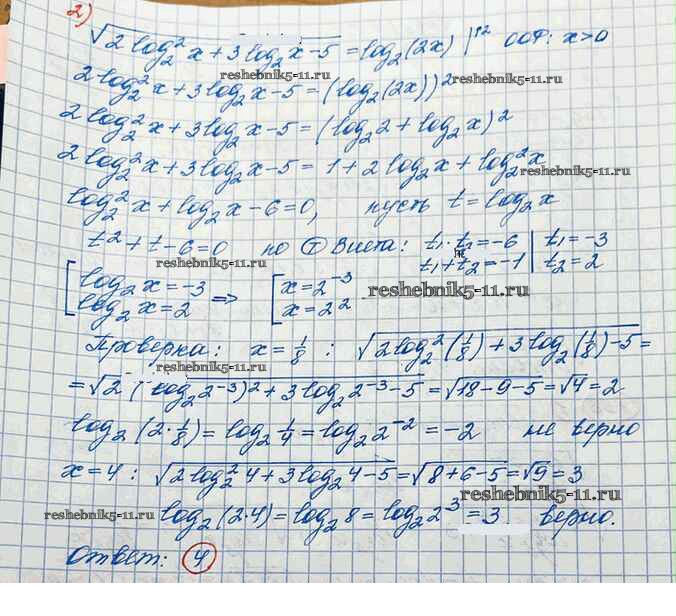 2)
√(2log₂²x + 3log₂x - 5) = log₂(2x) |↑2 ООФ: x>0
reshebnik5-11.ru
2log₂²x + 3log₂x - 5 = (log₂(2x))²
2log₂²x + 3log₂x - 5 = (log₂2 + log₂x)²
2log₂²x + 3log₂x - 5 = 1 + 2log₂x + log₂²x
reshebnik5-11.ru
log₂²x + log₂x - 6 = 0, пусть t = log₂x
t² + t - 6 = 0 по Т Виета: t₁·t₂ = -6 | t₁ = -3
t₁ + t₂ = -1 | t₂ = 2
reshebnik5-11.ru
[log₂x = -3 => [x = 2⁻³
log₂x = 2 x = 2²
reshebnik5-11.ru
Проверка: x = 1/8 : √(2log₂²(1/8) + 3log₂(1/8) - 5) =
reshebnik5-11.ru
= √2(log₂2⁻³)² + 3log₂2⁻³ - 5 = √(18 - 9 - 5) = √4 = 2
log₂(2·1/8) = log₂1/4 = log₂2⁻² = -2 не верно
x = 4 : √(2log₂²4 + 3log₂4 - 5) = √(8 + 6 - 5) = √9 = 3
reshebnik5-11.ru
reshebnik5-11.ru
log₂(2·4) = log₂8 = log₂2³ = 3 верно.
Ответ: 4
reshebnik5-11.ru